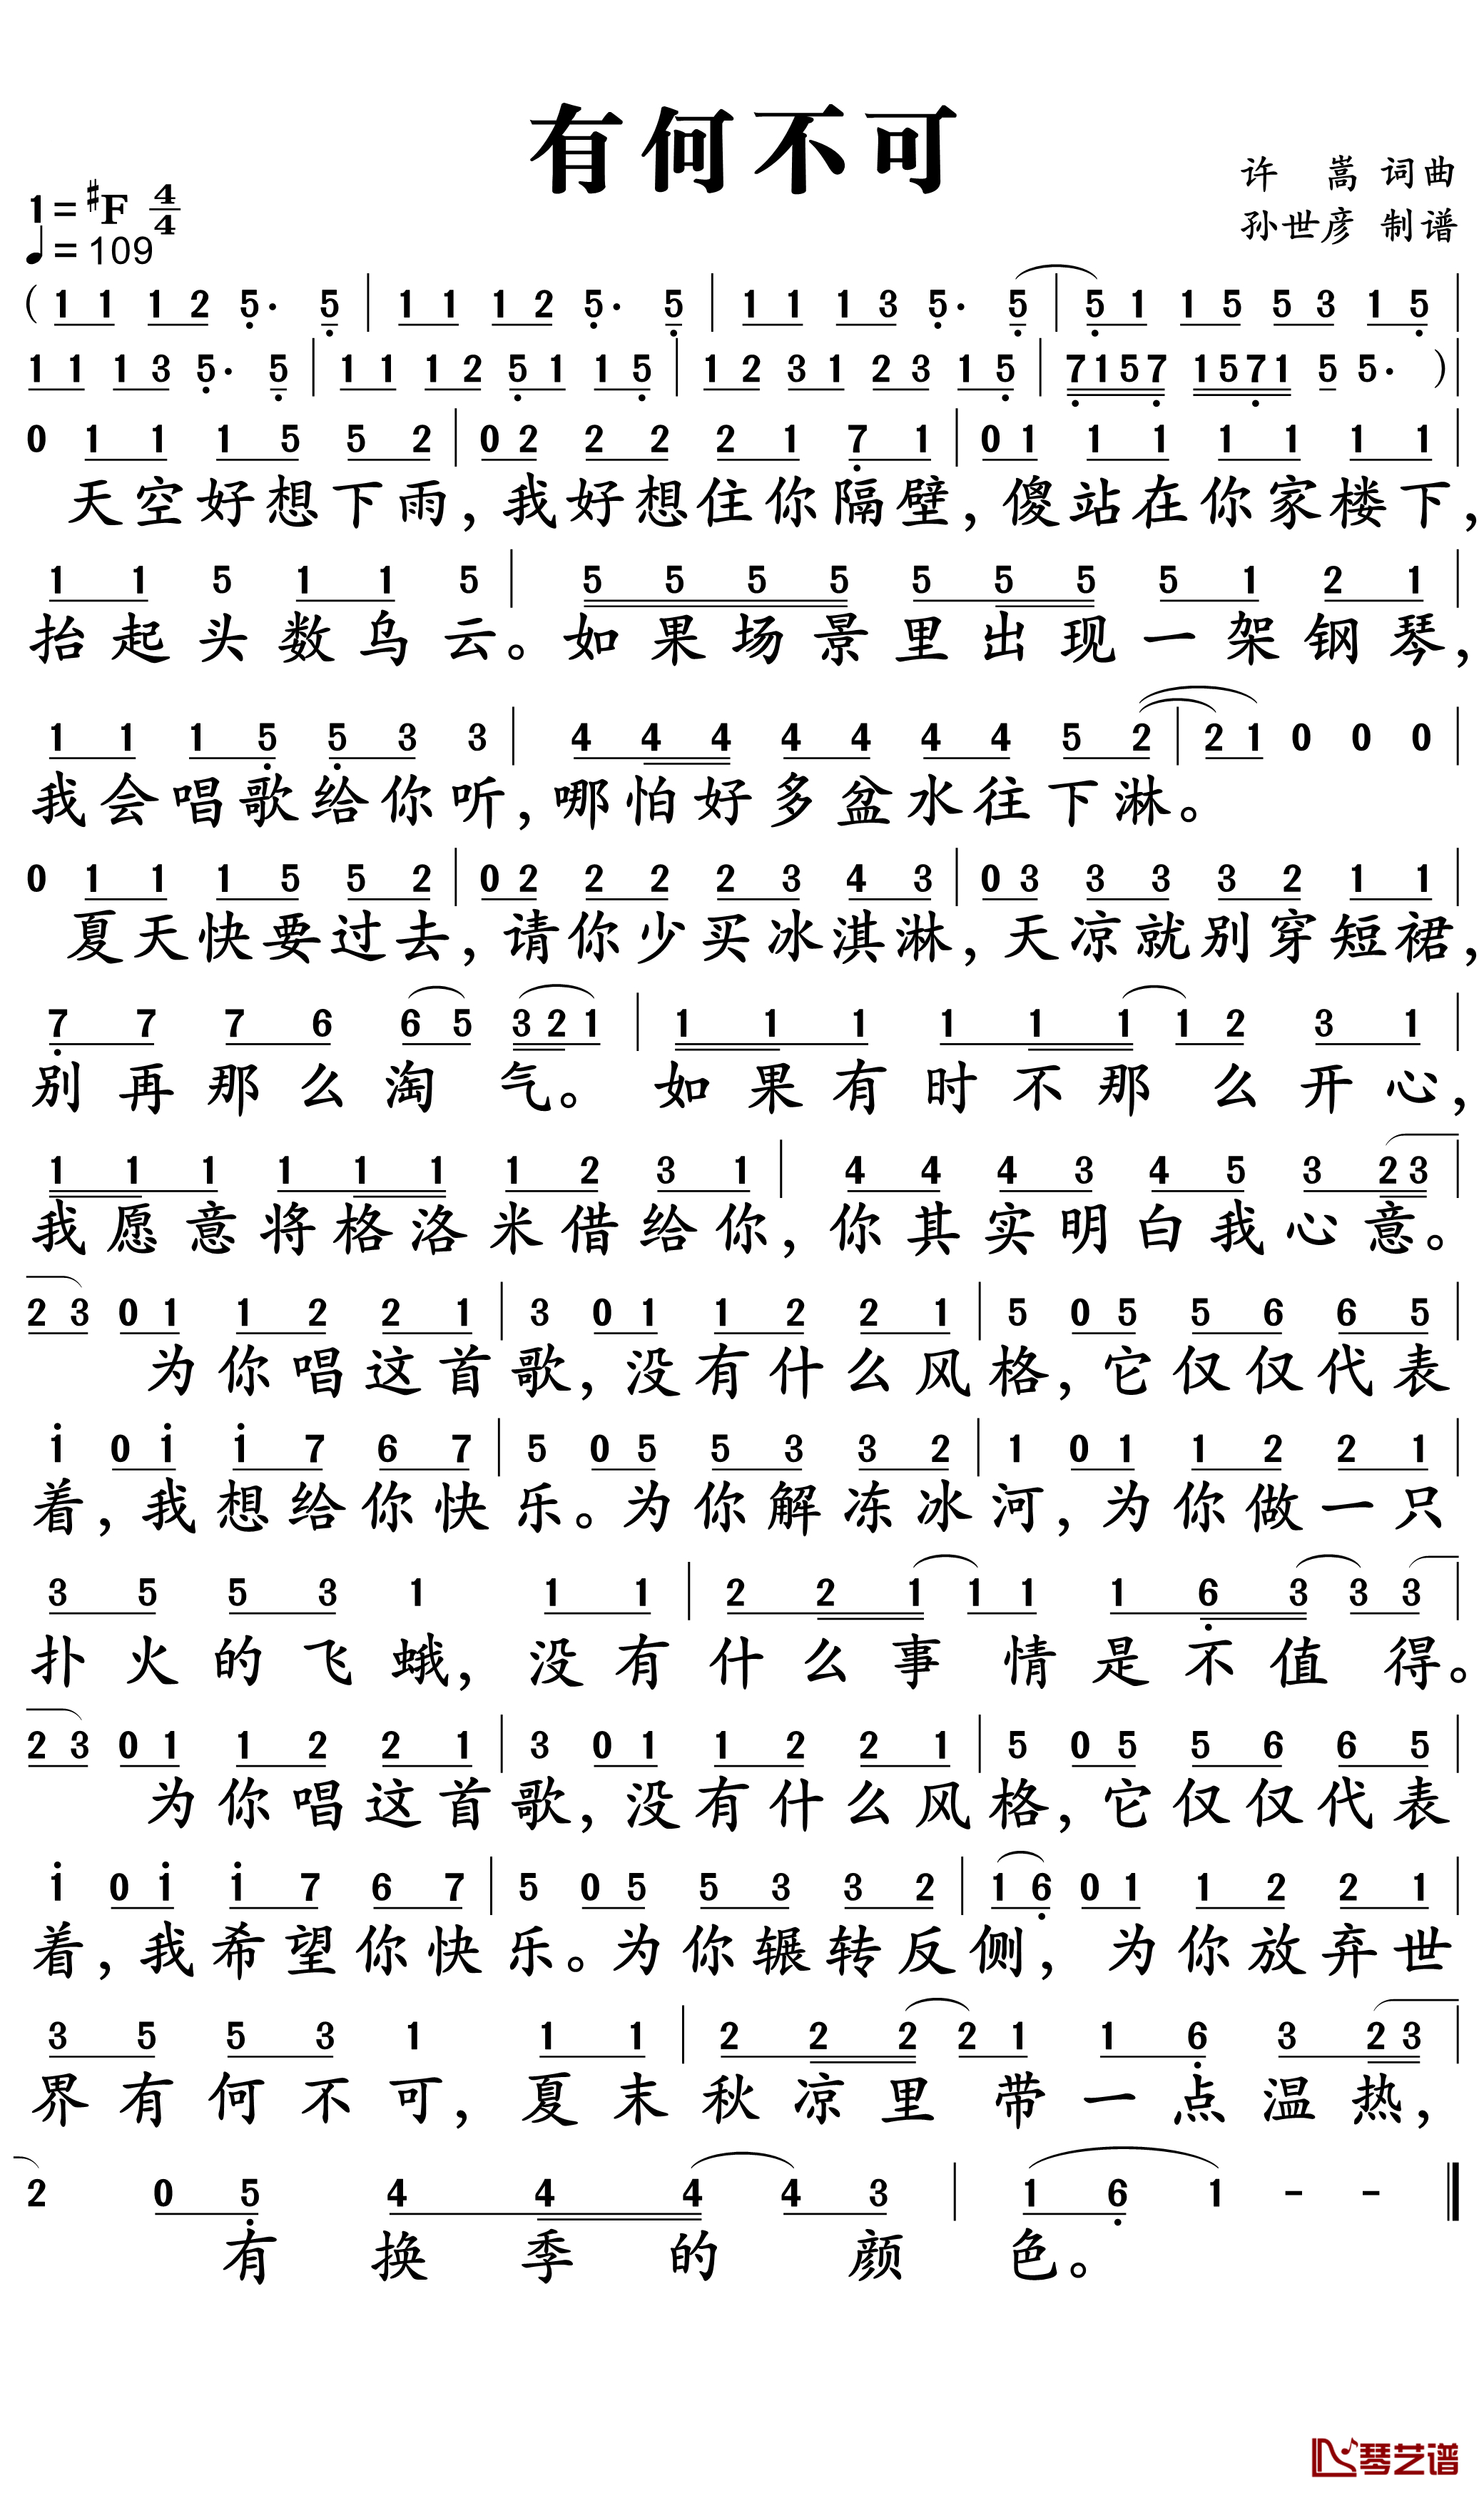 有何不可
许 嵩 词曲
孙世彦 制谱
1=#F 4/4
♩=109
( 1 1 1 2 5· 5 | 1 1 1 2 5· 5 | 1 1 1 3 5· 5 | 5 1 1 5 5 3 1 5 |
1 1 1 3 5· 5 | 1 1 1 2 5 1 1 5 | 1 2 3 1 2 3 1 5 | 7157 1571 5 5· )|
0 1 1 1 5 5 2 | 0 2 2 2 2 1 7 1 | 0 1 1 1 1 1 1 1 |
天空好想下雨,我好想住你隔壁,傻站在你家楼下,
1 1 5 1 1 5 | 5 5 5 5 5 5 5 5 1 2 1 |
抬起头数乌云。如果场景里出现一架钢琴,
1 1 1 5 5 3 3 | 4 4 4 4 4 4 4 5 2 | 2 1 0 0 0 |
我会唱歌给你听,哪怕好多盆水往下淋。
0 1 1 1 5 5 2 | 0 2 2 2 2 3 4 3 | 0 3 3 3 3 2 1 1 |
夏天快要过去,请你少买冰淇淋,天凉就别穿短裙,
7 7 7 6 6 5 3 2 1 | 1 1 1 1 1 1 1 2 3 1 |
别再那么淘气。如果有时不那么开心,
1 1 1 1 1 1 1 2 3 1 | 4 4 4 3 4 5 3 2 3 |
我愿意将格洛米借给你,你其实明白我心意。
2 3 0 1 1 2 2 1 | 3 0 1 1 2 2 1 | 5 0 5 5 6 6 5 |
为你唱这首歌,没有什么风格,它仅仅代表
i 0 i i 7 6 7 | 5 0 5 5 3 3 2 | 1 0 1 1 2 2 1 |
着,我想给你快乐。为你解冻冰河,为你做一只
3 5 5 3 1 1 1 | 2 2 1 1 1 1 6 3 3 3 |
扑火的飞蛾,没有什么事情是不值得。
2 3 0 1 1 2 2 1 | 3 0 1 1 2 2 1 | 5 0 5 5 6 6 5 |
为你唱这首歌,没有什么风格,它仅仅代表
i 0 i i 7 6 7 | 5 0 5 5 3 3 2 | 1 6 0 1 1 2 2 1 |
着,我希望你快乐。为你辗转反侧,为你放弃世
3 5 5 3 1 1 1 | 2 2 2 2 1 1 6 3 2 3 |
界有何不可,夏末秋凉里带一点温热,
2 0 5 4 4 4 4 3 | 1 6 1 - - ‖
有换季的颜色。
琴艺谱